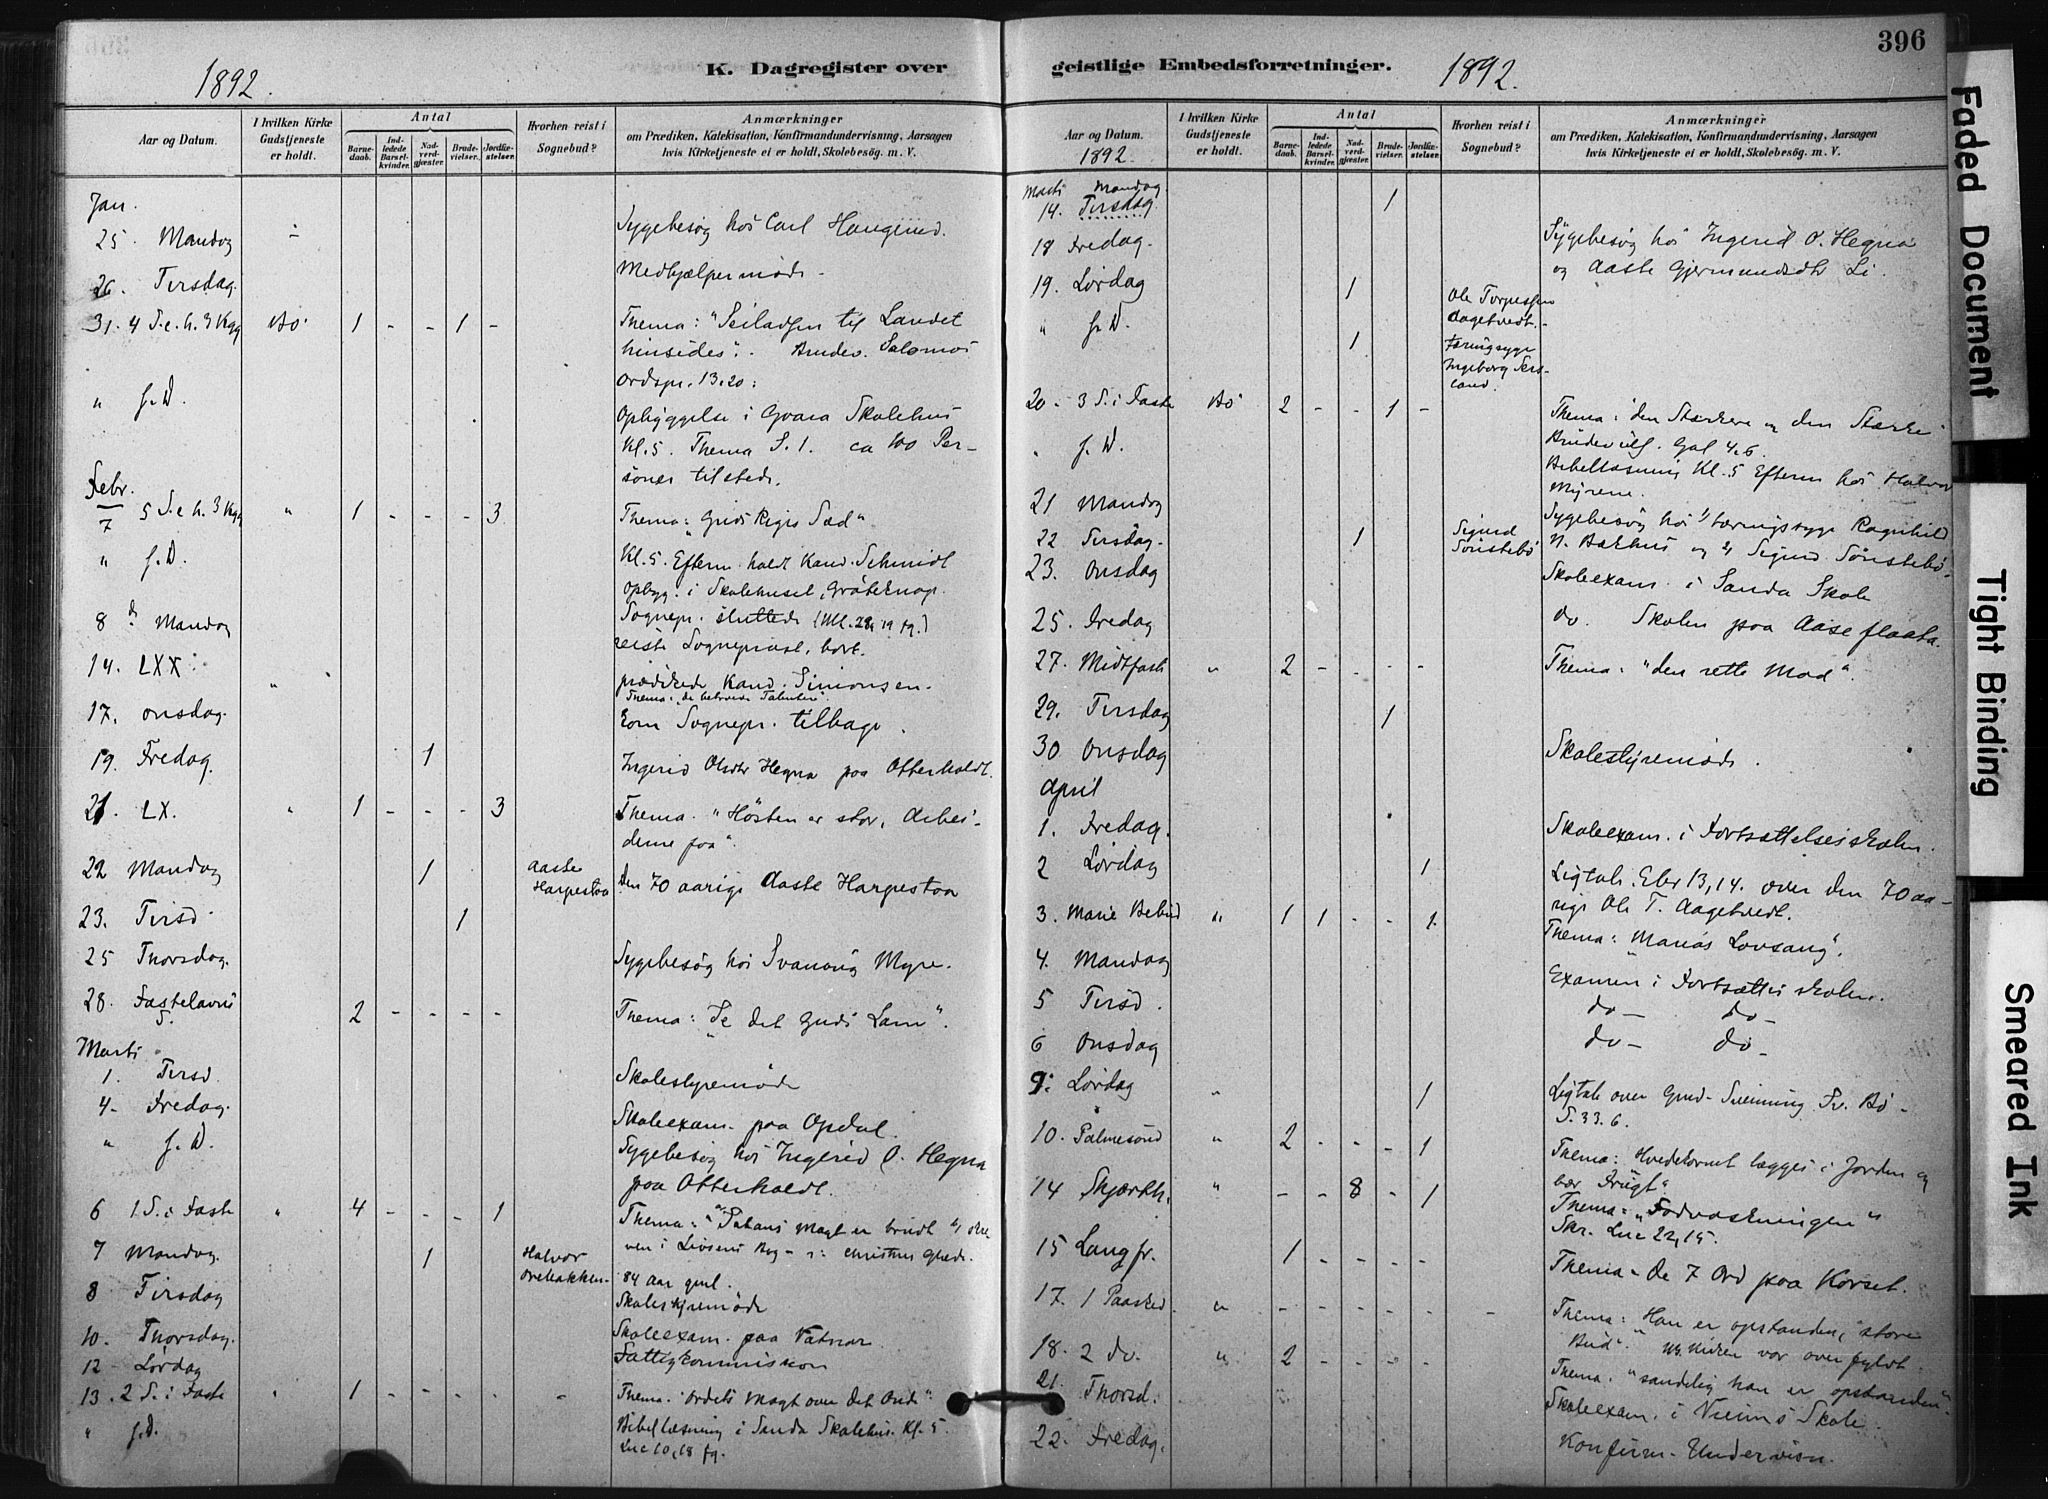 396
1892.
K. Dagregister over
geistlige Embedsforretninger.
1892.
Aar og Datum.
I hvilken Kirke Gudstjeneste er holdt.
Antal
Barnedaab.
Indledede Barselkvinder.
Nadverdgjæster.
Brudevielser.
Jordfæstelser.
Hvorhen reist i Sognebud?
Anmærkninger
om Prædiken, Katekisation, Konfirmandundervisning, Aarsagen
hvis Kirketjeneste ei er holdt, Skolebesøg. m. V.
Jan.
25. Mandag Sygebesøg hos Carl
26. Tirsdag. Medhjælpermøde
31. 4 S. e. h. 3 Kgg Bø 1 - - 1 - Thema: "Seiladsen til Landet
hinsides". Salomos
Ordspr. 13.20.
" s. D. Opbyggelse i Gvara Skolehus
Kl. 5. Thema S. 1. ca 100 Per-
soner tilstede.
Febr.
7 5 S. e h. 3 Kgg " 1 - - - 3 Thema: "Guds Riges Sæd"
" s. D. Kl. 5. Efterm. holdt Kand. Schmidt
opbyg. i Skolehuset,
8 Mandag
reiste Sogneprest. bort.
14. LXX. " prædikede Kand. Simonsen.
Thema: de betroede Talenter
17. Onsdag. kom Sognepr. tilbage.
19. Fredag. 1 Ingerid Olsdtr Hegna paa Otterholdt.
21. LX. " 1 - - - 3 Thema. "Høsten er stor, Arbei-
derne faa".
22 Mandag 1 Aaste Harpestaa Den 70 aarige Aaste Harpestaa
23. Tirsd. 1
25 Thorsdag. Sygebesøg hos Svanaug Myre.
28. Fastelavns S. 2 - - - - Thema: "Se det Guds Lam".
Marts
1. Tirsd. Skolestyremøde
4. Fredag. Skoleexam. paa Opdal.
" s. D. Sygebesøg hos Ingerid O. Hegna
paa Otterholdt.
6 1 S. i Faste " 4 - - - 1 Thema: "Satans Magt er brudt"
7 Mandag. 1 Halvor 84 Aar gml.
8 Tirsdag Skolestyremøde
10. Thorsdag. Skoleexam. paa Vatnar
12 Lørdag Fattigkommission
13. 2 S. i Faste " 1 - - - - Thema. "Ordets Magt over det Onde".
" s. D. Bibellæsning i Sanda Skolehus. Kl. 5.
Luc 10,18 fg.
Aar og Datum.
1892.
I hvilken Kirke Gudstjeneste er holdt.
Antal
Barnedaab.
Indledede Barselkvinder.
Nadverdgjæster.
Brudevielser.
Jordfæstelser.
Hvorhen reist i Sognebud?
Anmærkninger
om Prædiken, Katekisation, Konfirmandundervisning, Aarsagen
hvis Kirketjeneste ei er holdt, Skolebesøg. m. V.
Marts Mandag
14. Tirsdag 1
18 Fredag. Sygebesøg hos Ingerid O. Hegna
og Aaste Gjermundsdtr Li.
19. Lørdag 1 Ole Torgessen Aagetvedt.
" s. D. 1 Ingeborg
20. 3 S. i Faste Bø 2 - - 1 - Thema: "den Stærkere og den Stærke"
Gal 4.6.
" s. D. Bibellæsning Kl. 5 Efterm hos Halvor
Myrene.
21 Mandag Sygebesøg hos 1) tæringssyge Ragnhild
22 Tirsdag. 1 Sigurd Sønstebø N. Aarhus og 2) Sigurd Sønstebø.
23. Onsdag Skoleexam. i Sanda Skole
25. Fredag do. Skolen paa Aaseflaata.
27. Midtfaste " 2 - - - - Thema: "den rette Mad".
29. Tirsdag 1
30 Onsdag Skolestyremøde.
April
1. Fredag. Skoleexam. i Fortsættelsesskolen.
2 Lørdag 1 Ligtale. Ebr 13,14. over den 70 aa-
rige Ole T. Aagetvedt.
3. Marie Bebud " 1 1 - - 1. Thema: "Marias Lovsang".
4. Mandag Examen i Fortsættelsesskolen.
5 Tirsd. do- do-
6 Onsdag do- do-
9. Lørdag " 1 Ligtale over Bø -
S. 33.6.
10. Palmesønd " 2 - - - 1 Thema: Hvedekornet lægges i Jorden og
bær Frugt"
14 Skjærth. " - - 8 - 1 Thema: "Fodvaskningen"
Skr. Luc 22,15.
15 Langfr. 1 - - - - Thema - De 7 Ord paa Korset.
17. 1 Paasked. " - - - - - - Thema: Han er opstanden,
Kirken var overfyldt.
18. 2 do. " 2 - - - - Thema: "sandelig han er opstanden"
21. Thorsd. Skoleexam. i Skole.
22. Fredag. Konfirm-Undervisn.
Faded Document
Tight Binding
Smeared Ink